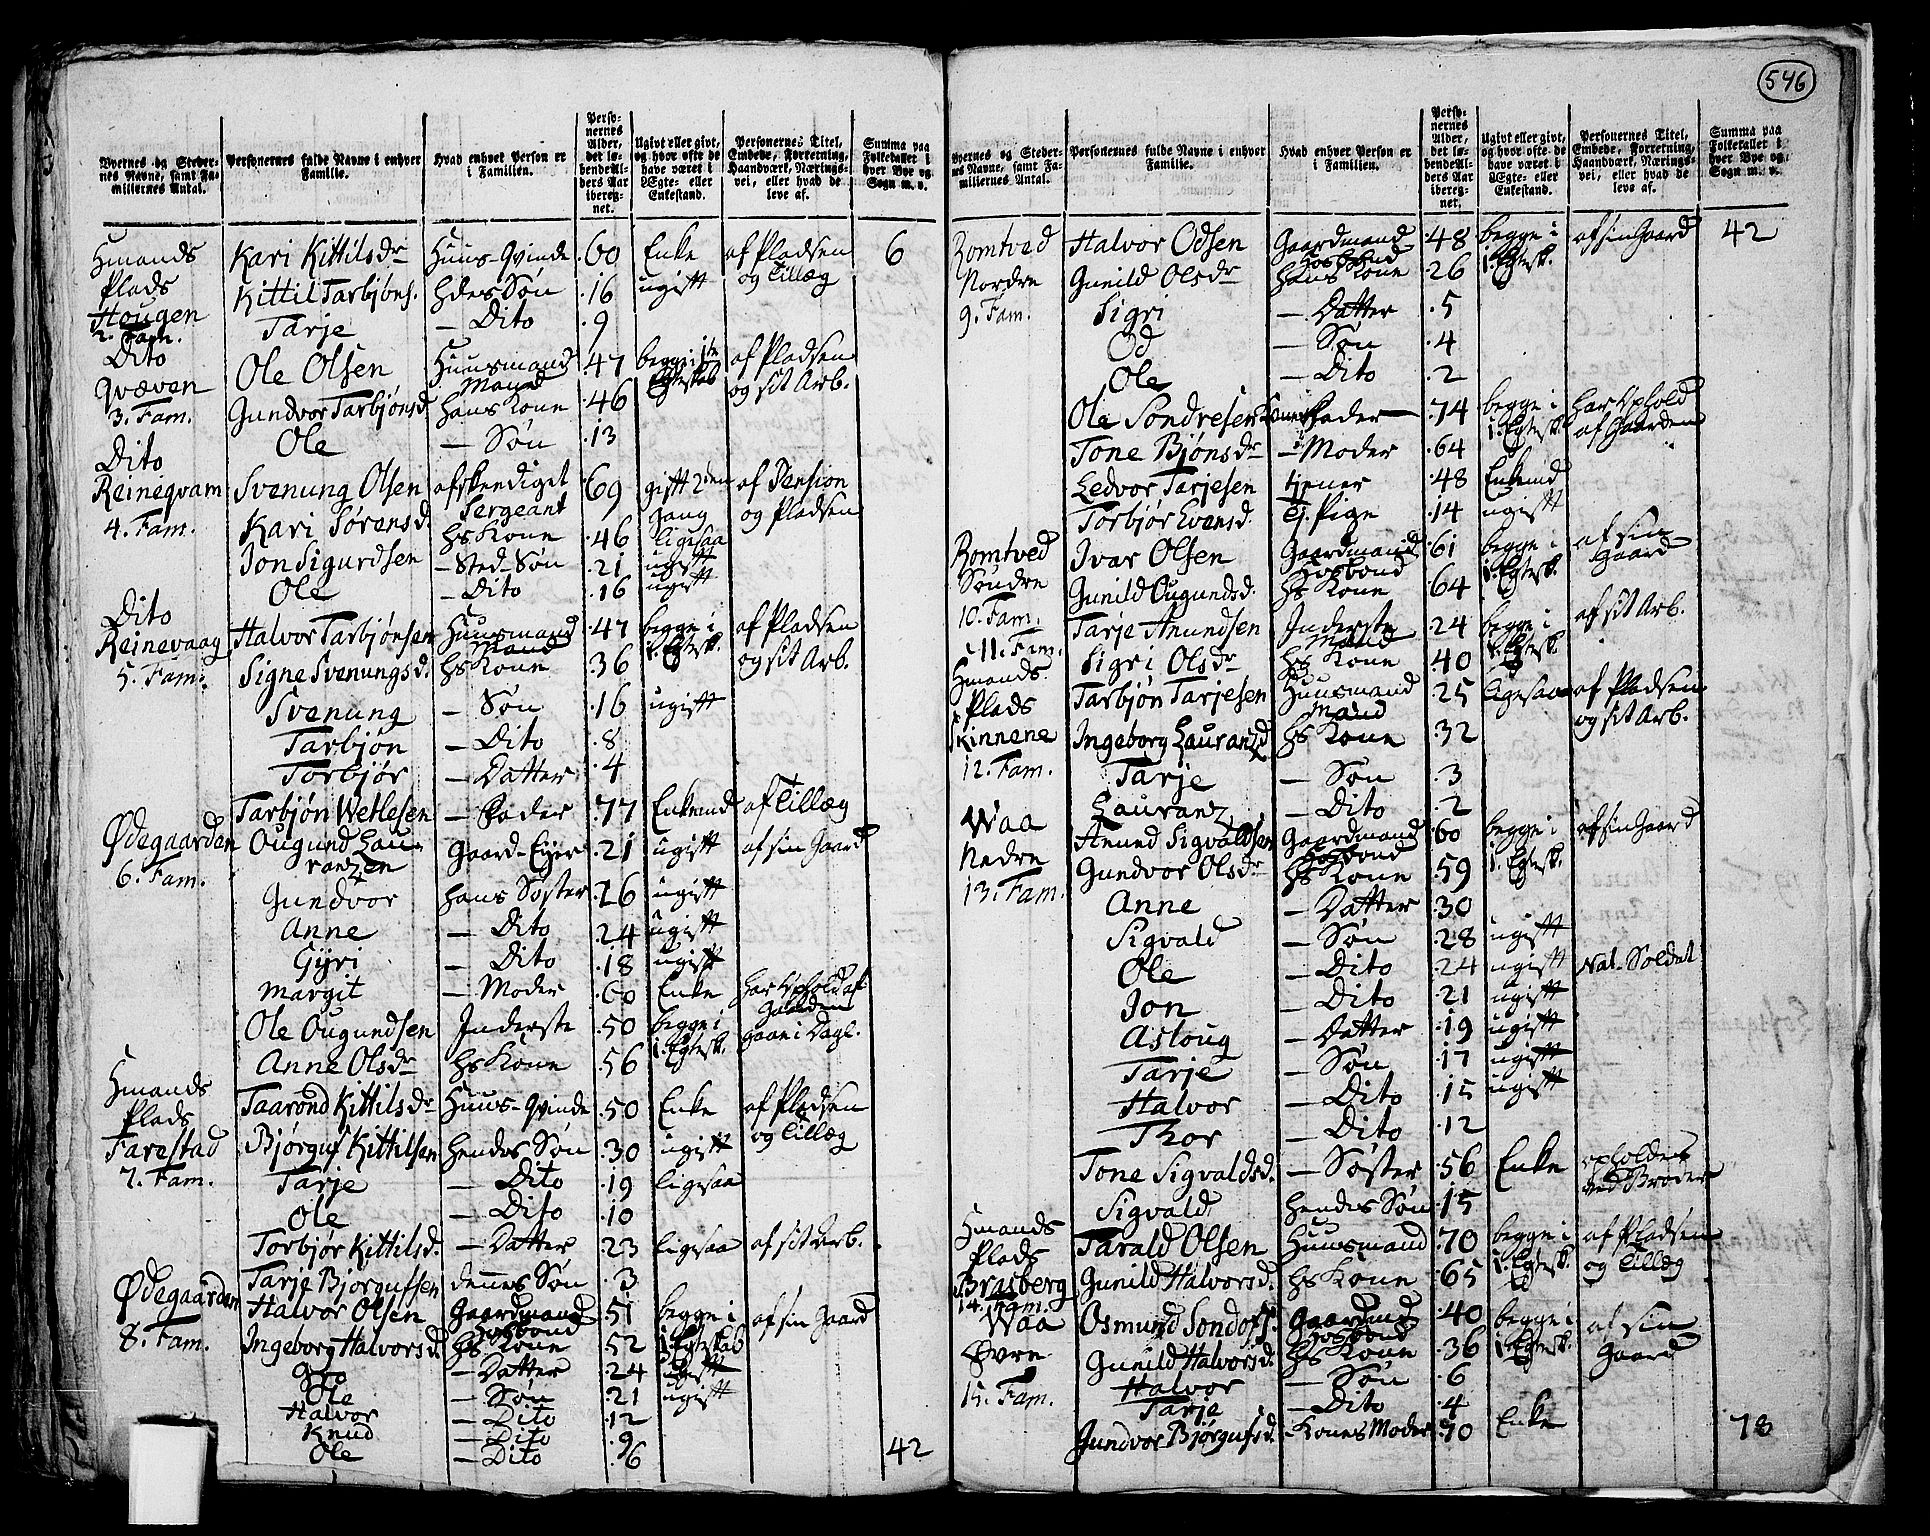 546
Byernes og Stedernes Navne, samt Familiernes Antal. | Personernes fulde Navne i enhver Familie. | Hvad enhver Person er i Familien. | Personernes Alder, det løbende Alders Aar iberegnet. | Ugivt eller givt, og hvor ofte de have været i Ægte- eller Enkestand. | Personernes Titel, Embede, Forretning, Haandværk, Næringsvei, eller hvad de leve af. | Summa paa Folketallet i hver Bye og Sogn m. v.
Hmands Plads Hougen 2. Fam. | Kari Kittilsdr | Huus-Qvinde | 60 | Enke | af Pladsen og Tillæg | 6
Kittil Tarbjøns. | Hdes Søn | 16 | ugift
Tarje | – Dito | 9
Dito Qvæven 3. Fam. | Ole Olsen | Huusmand Mand | 47 | begge i 1te Egteskab | af Pladsen og sit Arb.
Gundvor Tarbjønsd. | hans Kone | 46
Ole | – Søn | 13
Dito Reineqvam 4. Fam. | Svenung Olsen | afskendiget Sergeant | 69 | gift 2den Gang | af Pension og Pladsen
Kari Sørensd. | Hs Kone | 46 | ligesaa
Jon Sigurdsen | – Sted-Søn | 21 | ugift
Ole | – Dito | 16 | ugift
Dito Reinevaag 5. Fam. | Halvor Tarbjønsen | Huusmand Mand | 47 | begge i 1. Egtesk. | af Pladsen og sit Arb.
Signe Svenungsd. | Hs Kone | 36
Svenung | – Søn | 16 | ugift
Tarbjøn | – Dito | 8
Torbjør | – Datter | 4
Tarbjøn Wetlesen | – Fader | 77 | Enkemd | af Tillæg
Ødegaarden 6. Fam. | Ougund Lauranzen | Gaard-Eyer | 21 | ugift | af sin Gaard
Gundvor | hans Søster | 26 | ugift
Anne | – Dito | 24 | ugift
Gyri | – Dito | 18 | ugift
Margit | – Moder | 60 | Enke | har Ophold af Gaarden
Ole Ougundsen | Inderste | 50 | begge i 1. Egtesk. | gaae i Dagl.
Anne Olsdr | Hs Kone | 56
Hmands Plads Farestad 7. Fam. | Taarond Kittilsdr | Huus-Qvinde | 50 | Enke | af Pladsen og Tillæg
Bjørguf Kittilsen | Hendes Søn | 30 | ugift
Tarje | – Dito | 19 | ligesaa
Ole | – Dito | 10
Torbjør Kittilsd. | – Datter | 23 | ligesaa | af sit Arb.
Tarje Bjørgufsen | dennes Søn | 3
Ødegaarden 8. Fam. | Halvor Olsen | Gaardmand Hosbond | 51 | begge i 1. Egteskab | af sin Gaard
Ingeborg Halvorsd. | Hs Kone | 52
Gro | – Datter | 24 | ugift
Ole | – Søn | 21 | ugift
Halvor | – Dito | 12
Knud | – Dito | 9
Ole | – Dito | 6 | 42
Byernes og Stedernes Navne, samt Familiernes Antal. | Personernes fulde Navne i enhver Familie. | Hvad enhver Person er i Familien. | Personernes Alder, det løbende Alders Aar iberegnet. | Ugivt eller givt, og hvor ofte de have været i Ægte- eller Enkestand. | Personernes Titel, Embede, Forretning, Haandværk, Næringsvei, eller hvad de leve af. | Summa paa Folketallet i hver Bye og Sogn m. v.
Romtved Nordre 9. Fam. | Halvor Odsen | Gaardmand Hosbond | 48 | begge i 1. Egtesk. | af sin Gaard | 42
Gunild Olsdr | hans Kone | 26
Sigri | – Datter | 5
Od | – Søn | 4
Ole | – Dito | 2
Ole Sondresen | Kones Fader | 74 | begge i 1. Egtesk. | har Ophold af Gaarden
Tone Bjønsdr | – Moder | 64
Ledvor Tarjesen | tjener | 48 | Enkemd
Torbjør Evensd. | ej. Pige | 14 | ugift
Romtved Søndre 10. Fam. | Ivar Olsen | Gaardmand Hosbond | 61 | begge i 1. Egtesk. | af sin Gaard
Gunild Ougundsd. | Hs Kone | 64
11. Fam. | Tarje Anundsen | Inderste Mand | 24 | begge i 1. Egtesk. | af sit Arb.
Sigri Olsdr | Hs Kone | 40
Hmands Plads Skinnene 12. Fam. | Tarbjøn Tarjesen | Huusmand Mand | 25 | ligesaa | af Pladsen og sit Arb.
Ingeborg Lauranzd. | Hs Kone | 32
Tarje | – Søn | 3
Lauranz | – Dito | 2
Waa Nedre 13. Fam. | Anund Sigvaldsen | Gaardmand Hosbond | 60 | begge i 1. Egtesk. | af sin Gaard
Gundvor Olsdr | Hs Kone | 59
Anne | – Datter | 30
Sigvald | – Søn | 28 | ugift
Ole | – Dito | 24 | ugift | Nat. Soldat
Jon | – Dito | 21 | ugift
Asloug | – Datter | 19 | ugift
Tarje | – Søn | 17 | ugift
Halvor | – Dito | 15 | ugift
Thor | – Dito | 12
Tone Sigvaldsd. | – Søster | 56 | Enke | opholdes ved Broder
Sigvald | Hendes Søn | 15
Hmands Plads Brasberg 14. Fam. | Tarald Olsen | Huusmand | 70 | begge i 1. Egtesk. | af Pladsen og Tillæg
Gunild Halvorsd. | Hs Kone | 65
Waa Øvre 15. Fam. | Osmund | Gaardmd Hosbond | 40 | begge i 1. Egtesk. | af sin Gaard
Gunild Halvorsd. | Hs Kone | 36
Halvor | – Søn | 6
Tarje | – Dito | 4
Gundvor Bjørgufsd. | – Kones Moder | 70 | Enke | 78